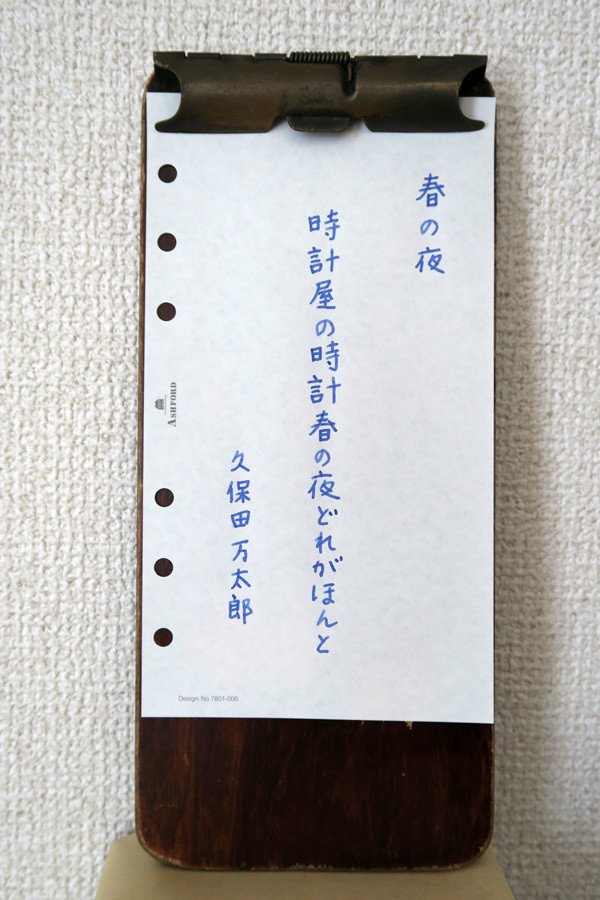 春の夜
時計屋の時計春の夜どれがほんと
久保田万太郎
ASHFORD
Design No.7801-000